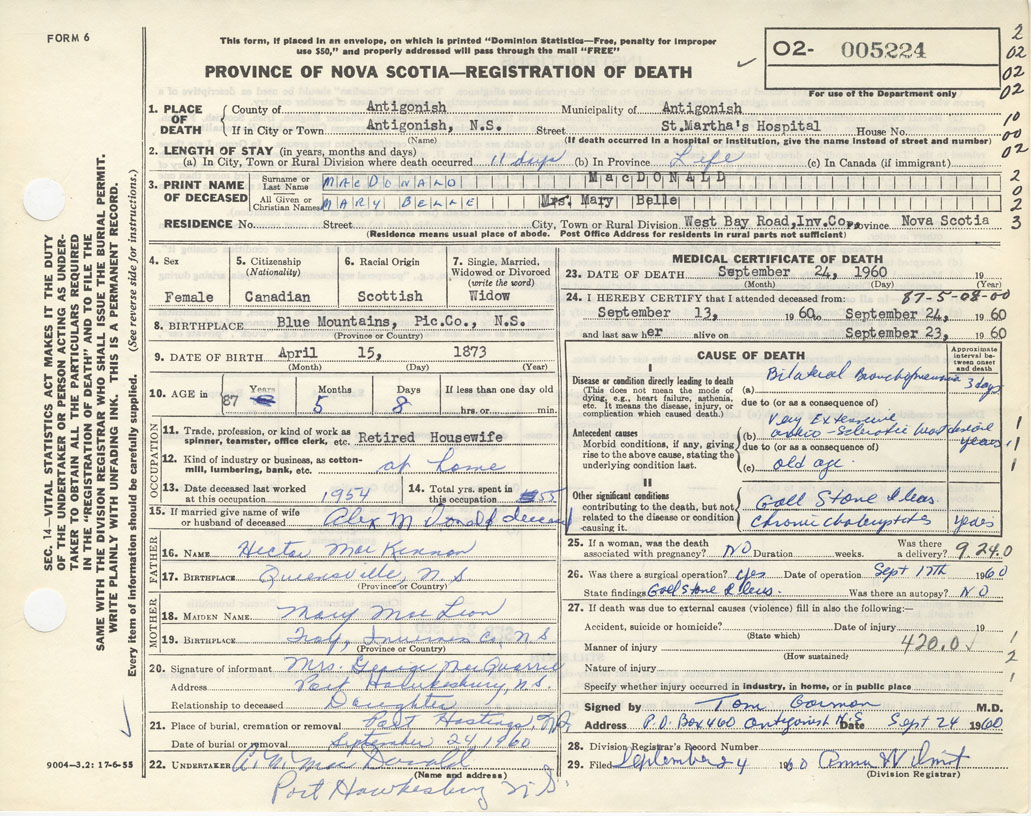 FORM 6
This form, if placed in an envelope, on which is printed "Dominion Statistics—Free, penalty for improper
use $50," and properly addressed will pass through the mail "FREE"
PROVINCE OF NOVA SCOTIA—REGISTRATION OF DEATH
O2- 005224
For use of the Department only
2
02
02
02
10
00
02
2
0
2
3
1. PLACE OF DEATH
County of Antigonish Municipality of Antigonish
If in City or Town Antigonish, N.S. Street St.Martha's Hospital House No.
(Name) (If death occurred in a hospital or institution, give the name instead of street and number)
2. LENGTH OF STAY (in years, months and days)
(a) In City, Town or Rural Division where death occurred 11 days (b) In Province Life (c) In Canada (if immigrant)
3. PRINT NAME OF DECEASED
Surname or Last Name MACDONALD MacDONALD
All Given or Christian Names MARY BELLE Mrs. Mary Belle
RESIDENCE No. Street City, Town or Rural Division West Bay Road, Inv.Co., Province Nova Scotia
(Residence means usual place of abode. Post Office Address for residents in rural parts not sufficient)
SEC. 14—VITAL STATISTICS ACT MAKES IT THE DUTY
OF THE UNDERTAKER OR PERSON ACTING AS UNDER-
TAKER TO OBTAIN ALL THE PARTICULARS REQUIRED
IN THE "REGISTRATION OF DEATH" AND TO FILE THE
SAME WITH THE DIVISION REGISTRAR WHO SHALL ISSUE THE BURIAL PERMIT.
WRITE PLAINLY WITH UNFADING INK. THIS IS A PERMANENT RECORD.
Every item of information should be carefully supplied. (See reverse side for instructions.)
4. Sex
Female
5. Citizenship
(Nationality)
Canadian
6. Racial Origin
Scottish
7. Single, Married,
Widowed or Divorced
(write the word)
Widow
8. BIRTHPLACE Blue Mountains, Pic.Co., N.S.
(Province or Country)
9. DATE OF BIRTH April 15, 1873
(Month) (Day) (Year)
10. AGE in 87 Years 5 Months 8 Days If less than one day old
hrs. or min.
OCCUPATION
11. Trade, profession, or kind of work as
spinner, teamster, office clerk, etc. Retired Housewife
12. Kind of industry or business, as cotton-
mill, lumbering, bank, etc. at home
13. Date deceased last worked
at this occupation 1954
14. Total yrs. spent in
this occupation 55
15. If married give name of wife
or husband of deceased Alex McDonald deceased
FATHER
16. NAME Hector MacKinnon
17. BIRTHPLACE Queensville, N.S
(Province or Country)
MOTHER
18. MAIDEN NAME Mary MacLean
19. BIRTHPLACE Troy, Inverness Co, N S
(Province or Country)
20. Signature of informant Mrs. George MacQuarrie
Address Port Hawkesbury, N.S.
Relationship to deceased Daughter
21. Place of burial, cremation or removal Port Hastings, N.S.
Date of burial or removal September 24, 1960
22. UNDERTAKER A. W. MacDonald
(Name and address)
Port Hawkesbury N.S.
9004—3.2: 17-6-55
MEDICAL CERTIFICATE OF DEATH
23. DATE OF DEATH September 24, 1960 19
(Month) (Day) (Year)
24. I HEREBY CERTIFY that I attended deceased from: 87-5-08-00
September 13, 1960 September 24, 1960
and last saw her alive on September 23, 1960
CAUSE OF DEATH
Approximate interval between onset and death
I
Disease or condition directly leading to death
(This does not mean the mode of
dying, e.g., heart failure, asthenia,
etc. It means the disease, injury, or
complication which caused death.)
(a) Bilateral Bronchopneumonia 3 days
due to (or as a consequence of)
Antecedent causes
Morbid conditions, if any, giving
rise to the above cause, stating the
underlying condition last.
Very Extensive
(b) Arterio-Sclerotic Heart disease years
due to (or as a consequence of)
(c) old age.
II
Other significant conditions
contributing to the death, but not
related to the disease or condition
causing it.
Gall Stone Ileus
Chronic Cholecystitis years
1
1
1
25. If a woman, was the death
associated with pregnancy? NO Duration weeks. Was there
a delivery? 9.24.0
26. Was there a surgical operation? yes Date of operation Sept 17th 1960
State findings Gall Stone Ileus. Was there an autopsy? NO
27. If death was due to external causes (violence) fill in also the following:—
Accident, suicide or homicide? Date of injury 19
(State which)
Manner of injury 420.0
(How sustained)
Nature of injury
1
2
1
Specify whether injury occurred in industry, in home, or in public place
Signed by Tom Gorman M.D.
Address P.O. Box 460 Antigonish N.S Date Sept 24 1960
28. Division Registrar's Record Number
29. Filed September 24 1960 Anna Wilmot
(Division Registrar)